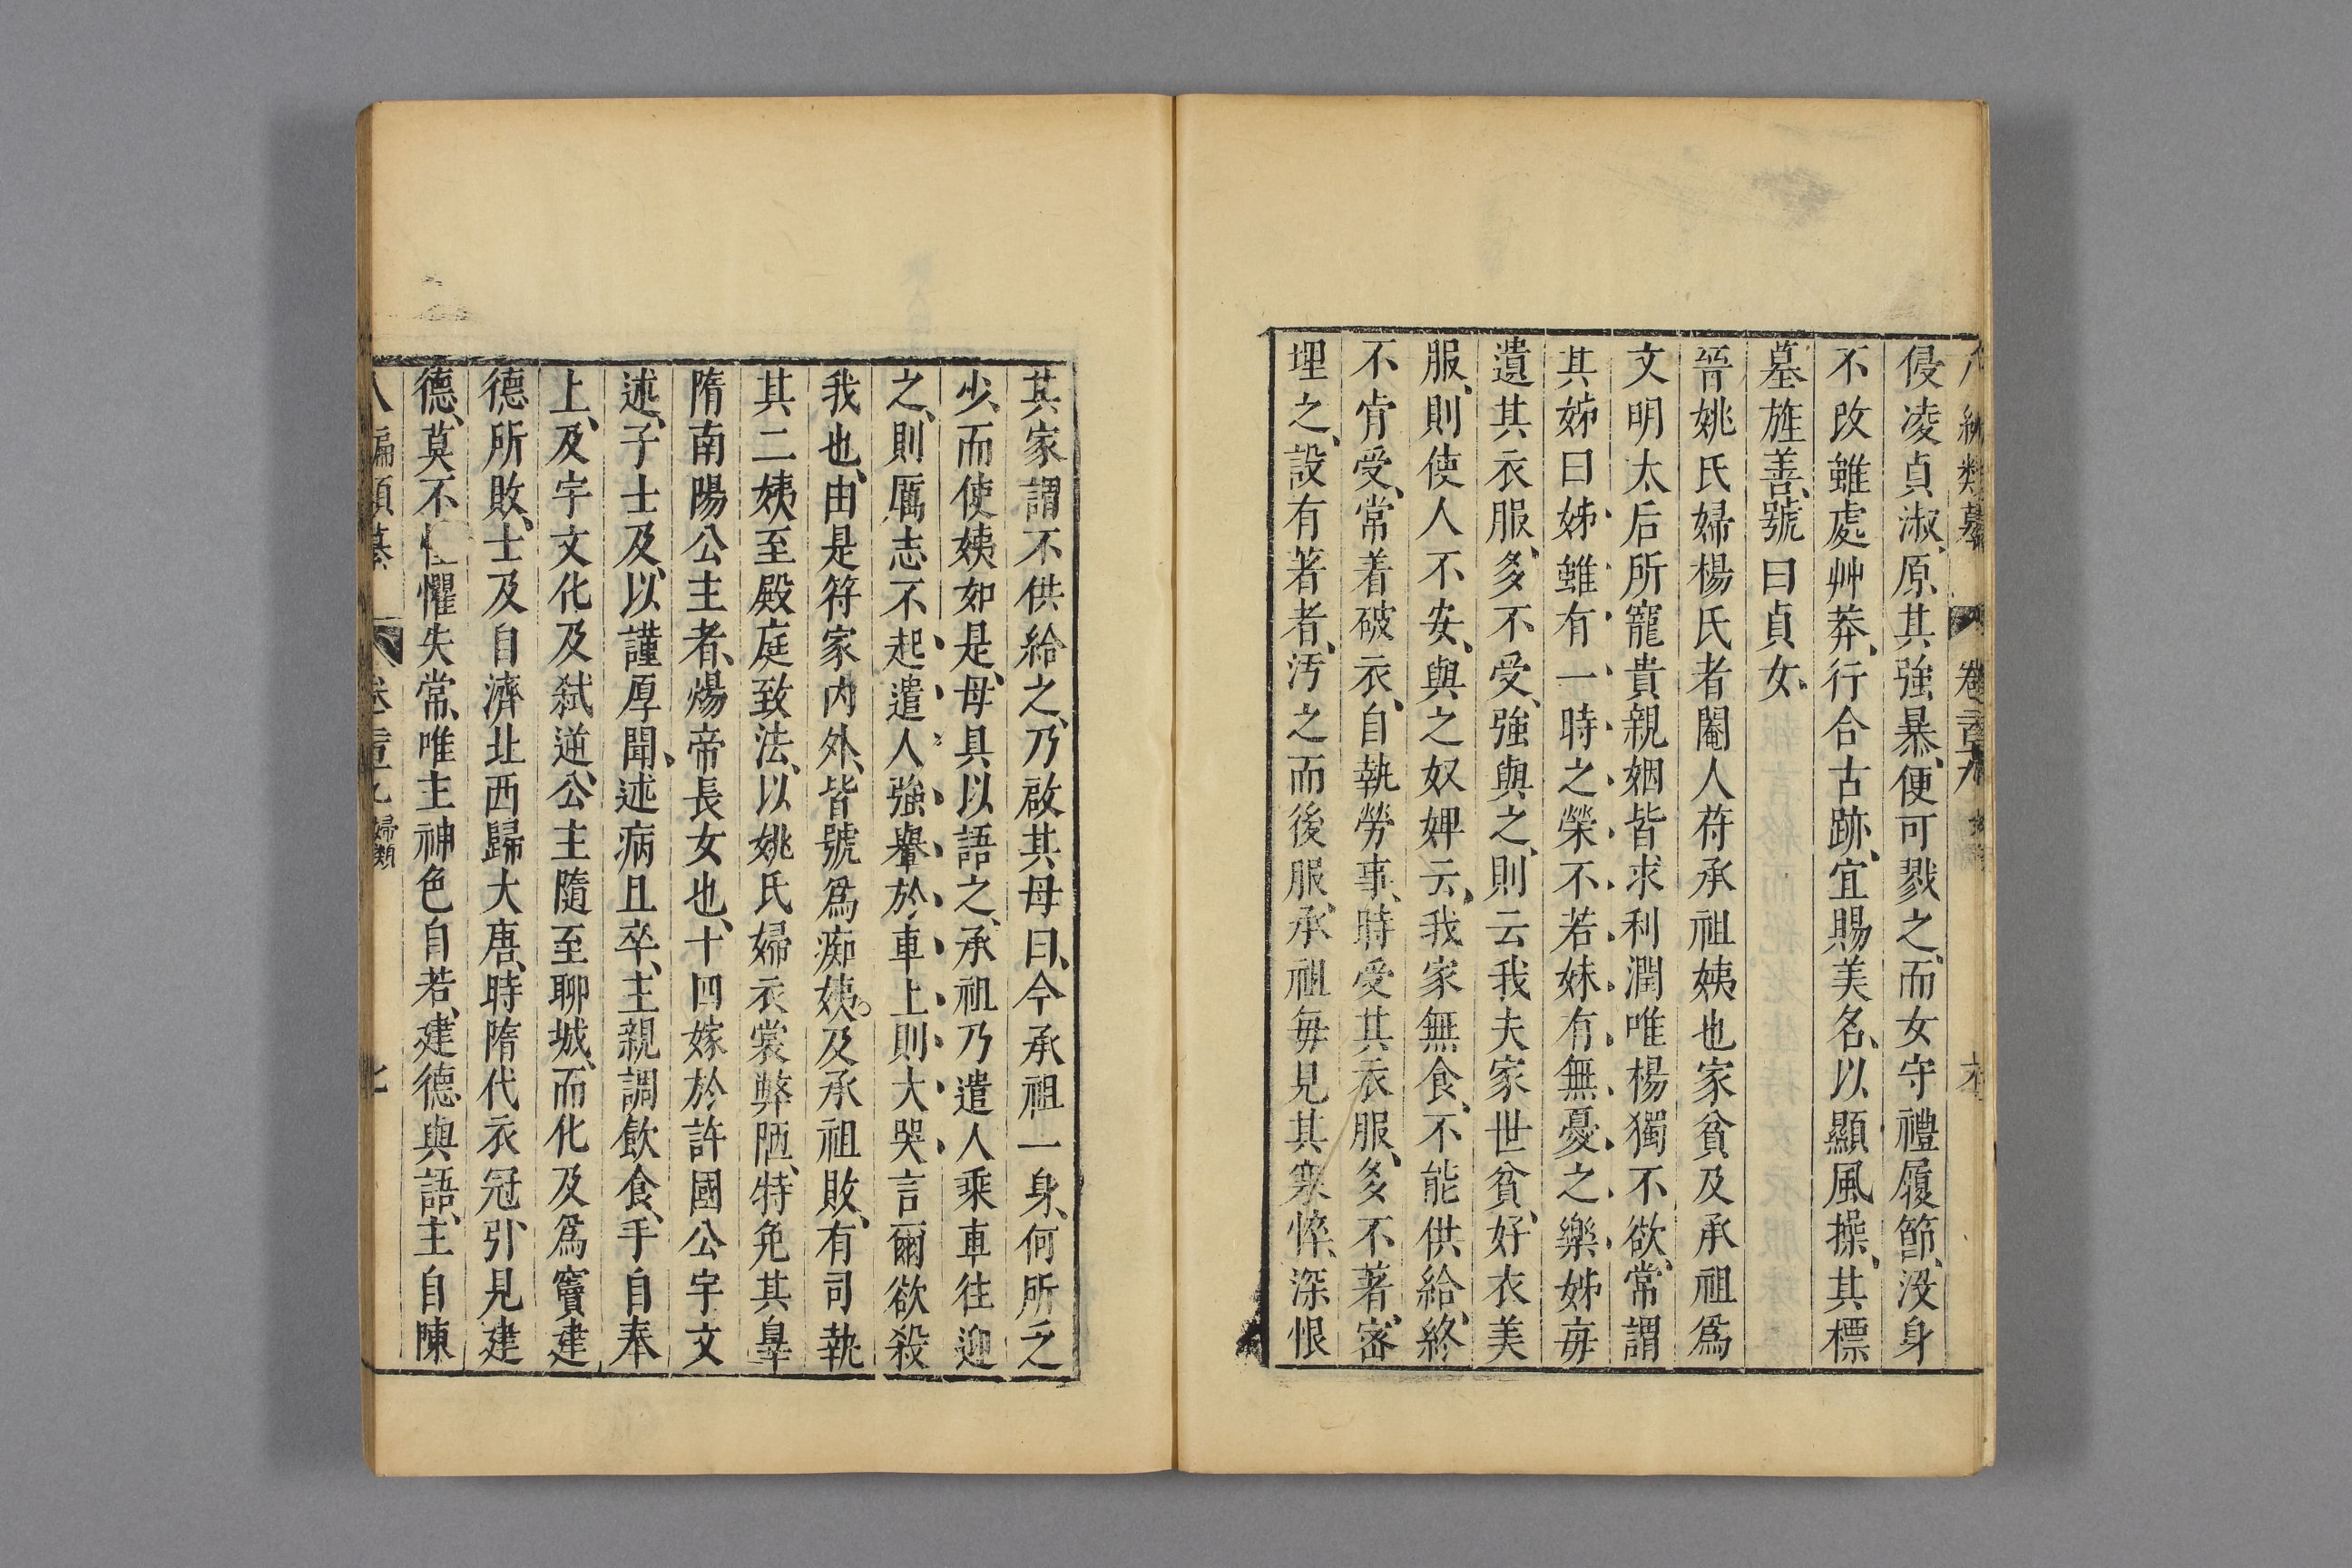 侵凌貞淑、原其強暴、便可戮之、而女守禮履節、沒身
不改雖處艸莽、行合古跡、宜賜美名、以顯風操、其標
墓旌善、號曰貞女、
晉姚氏婦楊氏者閹人苻承祖姨也家貧及承祖爲
文明太后所寵貴親姻皆求利潤唯楊獨不欲、常謂
其姊曰姊雖有一時之榮不若妹有無憂之樂姊毎
遺其衣服、多不受、強與之、則云我夫家世貧、好衣美
服、則使人不安、與之奴婢云、我家無食、不能供給、終
不肯受、常着破衣、自執勞事、時受其衣服、多不著、密
埋之、設有著者、汚之而後服、承祖毎見其寒悴、深恨
其家謂不供給之、乃啟其母曰、今承祖一身、何所乏
少、而使姨如是、母具以語之、承祖乃遣人乘車往迎
之、則厲志不起遣人強轝於車上則大哭言爾欲殺
我也、由是符家內外、皆號爲痴姨。及承祖敗、有司執
其二姨至殿庭致法、以姚氏婦衣裳弊陋、特免其辠
隋南陽公主者、煬帝長女也、十四嫁於許國公宇文
述、子士及、以謹厚聞、述病且卒、主親調飲食、手自奉
上、及宇文化及弒逆、公主隨至聊城、而化及爲竇建
德所敗、士及自濟北西歸大唐、時隋代衣冠引見建
德、莫不懼失常、唯主神色自若、建德與語、主自陳
八編類纂 卷二百九 婦類 七